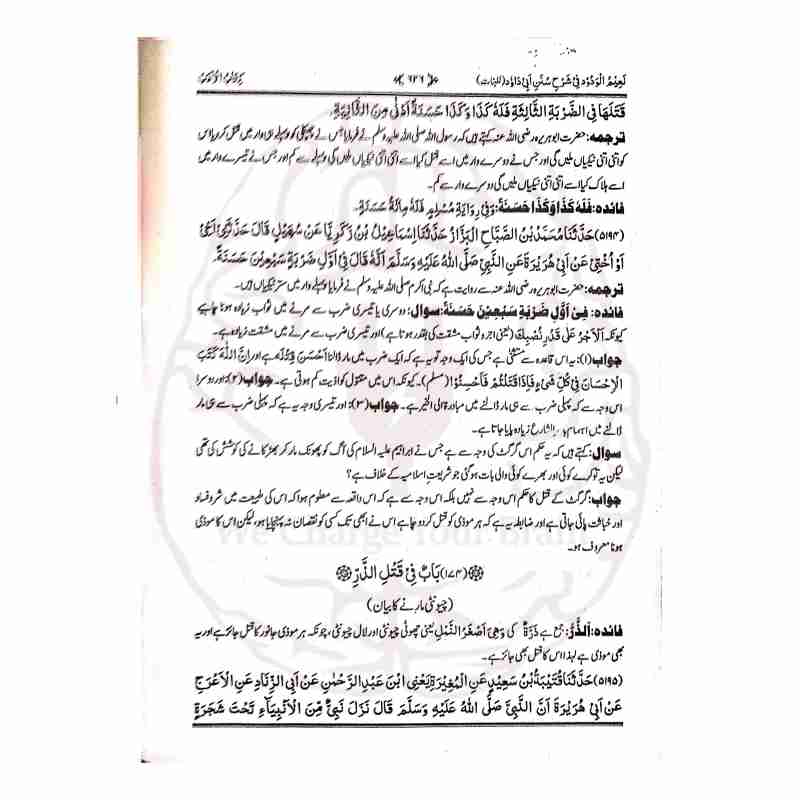 نَعِيْمُ الْوَدُوْد فِيْ شَرْحِ سُنَنِ اَبِيْ دَاوٗد (للبنات)
قَتَلَهَا فِي الضَّرْبَةِ الثَّالِثَةِ فَلَهٗ كَذَا وَكَذَا حَسَنَةً اَدْنٰى مِنَ الثَّانِيَةِ.
ترجمہ: حضرت ابوہریرہ رضی اللہ عنہ کہتے ہیں کہ رسول اللہ صلی اللہ علیہ وسلم نے فرمایا جس نے چھپکلی کو پہلے ہی وار میں قتل کر دیا اس
کو اتنی اتنی نیکیاں ملیں گی اور جس نے دوسرے وار میں اسے قتل کیا اسے اتنی اتنی نیکیاں ملیں گی پہلے سے کم اور جس نے تیسرے وار میں
اسے ہلاک کیا اسے اتنی اتنی نیکیاں ملیں گی دوسرے وار سے کم۔
فائدہ: فَلَهٗ كَذَا وَكَذَا حَسَنَةً: وَفِيْ رِوَايَةِ مُسْلِمٍ فَلَهٗ مِائَةُ حَسَنَةٍ۔
(۵۱۹۴) حَدَّثَنَا مُحَمَّدُ بْنُ الصَّبَّاحِ الْبَزَّازُ حَدَّثَنَا اِسْمَاعِيْلُ بْنُ زَكَرِيَّا عَنْ سُهَيْلٍ قَالَ حَدَّثَنِيْ اَخِيْ
اَوْ اُخْتِيْ عَنْ اَبِيْ هُرَيْرَةَ عَنِ النَّبِيِّ صَلَّى اللّٰهُ عَلَيْهِ وَسَلَّمَ اَنَّهٗ قَالَ فِيْ اَوَّلِ ضَرْبَةٍ سَبْعِيْنَ حَسَنَةً.
ترجمہ: حضرت ابوہریرہ رضی اللہ عنہ سے روایت ہے کہ نبی اکرم صلی اللہ علیہ وسلم نے فرمایا پہلے وار میں ستر نیکیاں ہیں۔
فائدہ: فِيْ اَوَّلِ ضَرْبَةٍ سَبْعِيْنَ حَسَنَةً: سوال: دوسری یا تیسری ضرب سے مرنے میں ثواب زیادہ ہونا چاہیے
کیونکہ اَلْاَجْرُ عَلٰى قَدْرِ نُصْبِكَ (یعنی اجر و ثواب مشقت کی بقدر ہوتا ہے) اور تیسری ضرب سے مرنے میں مشقت زیادہ ہے۔
جواب (۱): یہ اس قاعدہ سے مستثنیٰ ہے جس کی ایک وجہ تو یہ ہے کہ ایک ضرب میں مار ڈالنا اَحْسَنُ قِتْلَةً ہے اور اِنَّ اللّٰهَ كَتَبَ
الْاِحْسَانَ فِيْ كُلِّ شَيْءٍ فَاِذَا قَتَلْتُمْ فَاَحْسِنُوْا (مسلم)۔ کیونکہ اس میں مقتول کو اذیت کم ہوتی ہے۔ جواب (۲): اور دوسرا
اس وجہ سے کہ پہلی ضرب سے ہی مار ڈالنے میں مبادرة الی الخیر ہے۔ جواب (۳): اور تیسری وجہ یہ ہے کہ پہلی ضرب سے ہی مار
ڈالنے میں اہتمام بامر الشارع زیادہ پایا جاتا ہے۔
سوال: کہتے ہیں کہ یہ حکم اس گرگٹ کی وجہ سے ہے جس نے ابراہیم علیہ السلام کی آگ کو پھونک مار کر بھڑکانے کی کوشش کی تھی
لیکن یہ تو کرے کوئی اور بھرے کوئی والی بات ہوگئی جو شریعت اسلامیہ کے خلاف ہے؟
جواب: گرگٹ کے قتل کا حکم اس وجہ سے نہیں بلکہ اس وجہ سے ہے کہ اس واقعہ سے معلوم ہوا کہ اس کی طبیعت میں شر و فساد
اور خباثت پائی جاتی ہے اور ضابطہ ہے کہ ہر موذی کو قتل کر دو چاہے اس نے ابھی تک کسی کو نقصان نہ پہنچایا ہو، لیکن اس کا موذی
ہونا معروف ہو۔
We Charge Your Brain
(۱۷۴) بَابٌ فِيْ قَتْلِ الذَّرِّ
(چیونٹی مارنے کا بیان)
فائدہ: اَلذُّرُّ: جمع ہے ذَرَّةٌ کی وَهِيَ اَصْغَرُ النَّمْلِ یعنی چھوٹی چیونٹی اور لال چیونٹی، چونکہ ہر موذی جانور کا قتل جائز ہے اور یہ
بھی موذی ہے لہٰذا اس کا قتل بھی جائز ہے۔
(۵۱۹۵) حَدَّثَنَا قُتَيْبَةُ بْنُ سَعِيْدٍ عَنِ الْمُغِيْرَةِ يَعْنِيْ ابْنَ عَبْدِ الرَّحْمٰنِ عَنْ اَبِي الزِّنَادِ عَنِ الْاَعْرَجِ
عَنْ اَبِيْ هُرَيْرَةَ اَنَّ النَّبِيَّ صَلَّى اللّٰهُ عَلَيْهِ وَسَلَّمَ قَالَ نَزَلَ نَبِيٌّ مِّنَ الْاَنْبِيَآءِ تَحْتَ شَجَرَةٍ